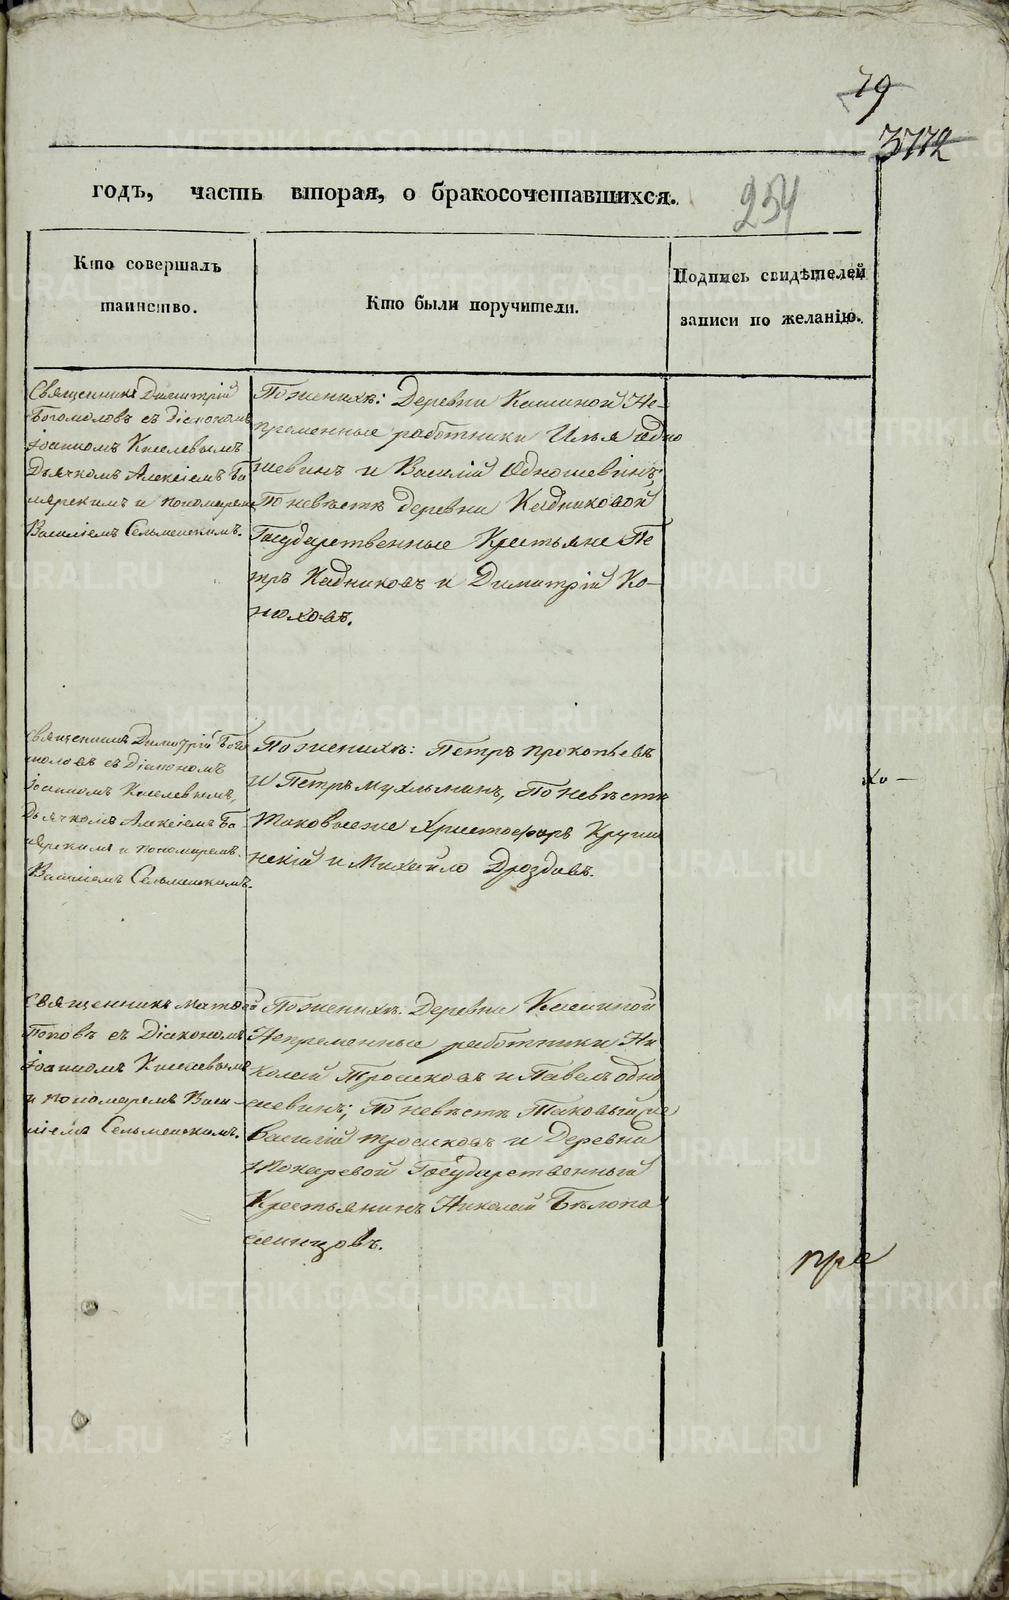 79
3772
годъ, часть вторая, о бракосочетавшихся.
254
Кто совершалъ
таинство.
Кто были поручители.
Подпись свидѣтелей
записи по желанію.
Священникъ Димитрій
Богомоловъ съ діакономъ
Іоанномъ Киселевымъ
Дьячкомъ Алексіемъ Ба
и пономаремъ
Василіемъ Сельменскимъ.
По женихѣ: Деревни Кашиной Не-
пременные работники Илья Одно
шевинъ и Василій Одношевинъ;
По невѣстѣ деревни Кадниковой
Государственные Крестьяне Пе
тръ Кадниковъ и Димитрій Ко-
нюховъ.
Священникъ Димитрій Бого
моловъ съ Діакономъ
Іоанномъ Киселевымъ,
Дьячкомъ Алексіемъ Ба
и пономаремъ
Василіемъ Сельменскимъ.
По женихѣ: Петръ Прокопьевъ
и Петръ Мухлынинъ, По невѣстѣ
Таковыеже Христофоръ Круши
нскій и Михайло Дроздовъ.
Хо —
Священникъ Матѳей
Поповъ съ Діакономъ
Іоанномъ Киселевымъ
и пономаремъ Васи-
ліемъ Сельменскимъ.
По женихѣ. Деревни Кашиной
Непременные работники Ни
колай Трошковъ и Павелъ Одно
шевинъ; По невѣстѣ Таковыйже
Василій Трошковъ и Деревни
Токаревой Государственный
Крестьянинъ Николай Бѣлопа
шинцовъ.
при
METRIKI.GASO-URAL.RU